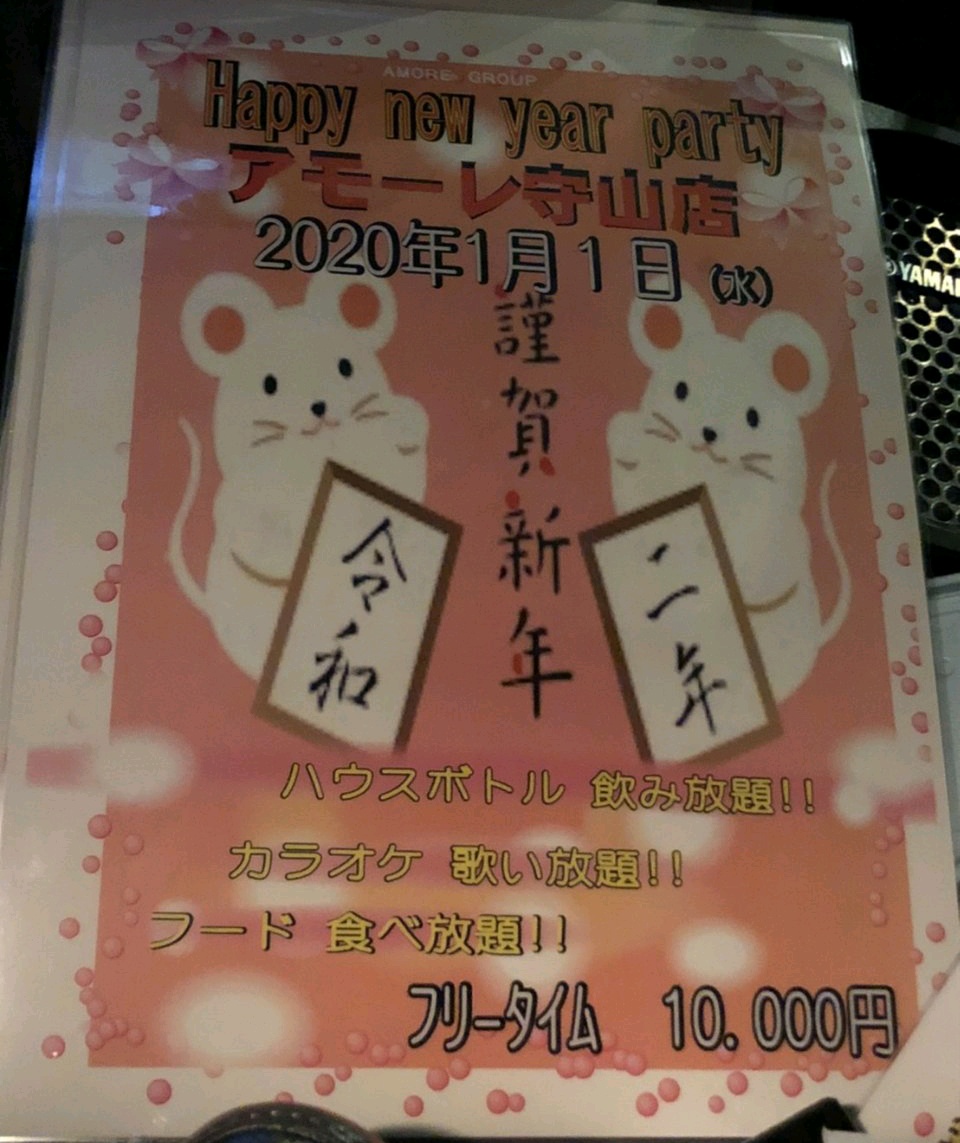 AMORE GROUP
Happy new year party
アモーレ守山店
2020年1月1日 (水)
謹賀新年
令和
二年
ハウスボトル 飲み放題!!
カラオケ 歌い放題!!
フード 食べ放題!!
フリータイム 10.000円